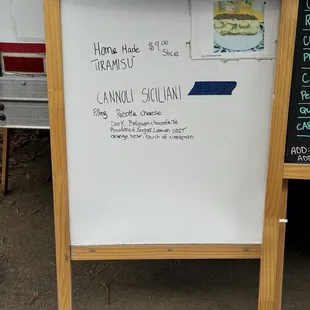 Home Made $9.00 Slice
TIRAMISU'
CANNOLI SICILIANI
Filling Ricotta cheese
Dark Belgium chocolate
Powdered sugar, Lemon zest
orange zest, touch of cinnamon
ADD